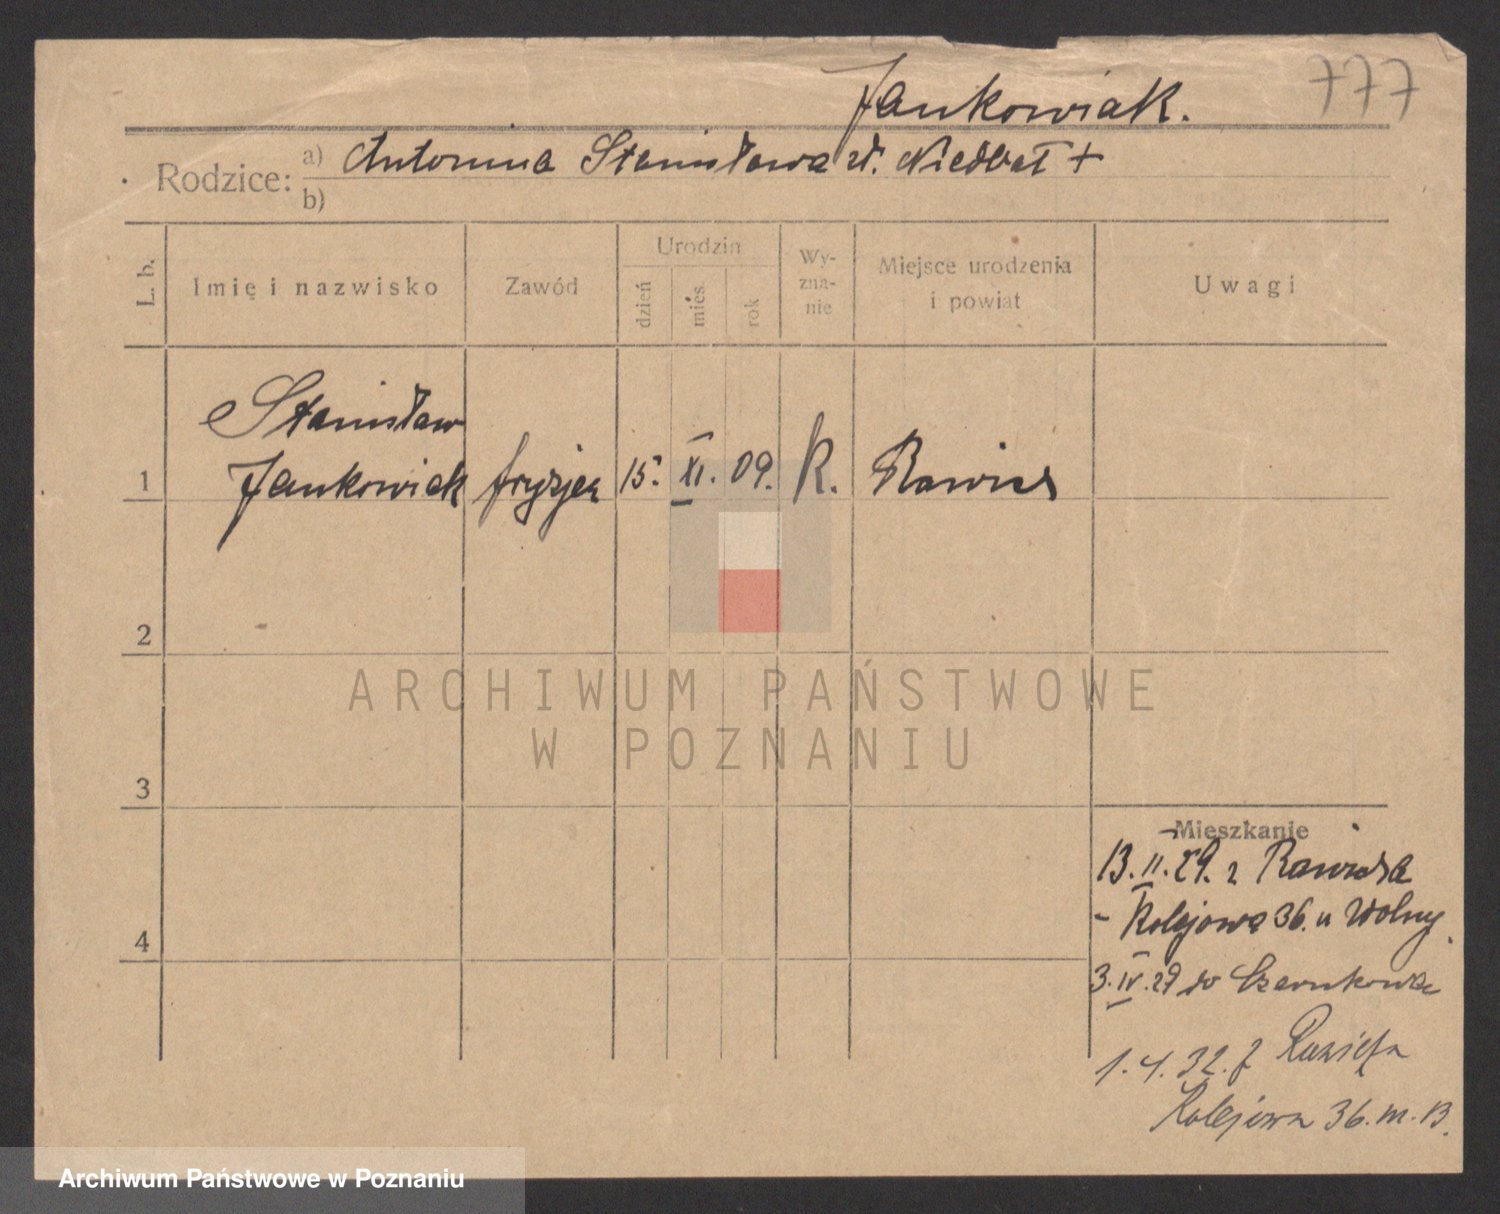 777
Jankowiak.
Rodzice: a) Antonina Stanisława z d. Niedbał +
b)
L. b.
Imię i nazwisko
Zawód
Urodzin
dzień
mies.
rok
Wy-
zna-
nie
Miejsce urodzenia
i powiat
Uwagi
Stanisław
1 Jankowiak fryzjer 15. XI. 09. R. Rawicz
2
ARCHIWUM PAŃSTWOWE
W POZNANIU
3
Mieszkanie
13. II. 29. z Rawicza
- Kolejowa 36. u Wolny.
4
3. IV. 29 do Czarnkowa
1. 4. 32. z Rawicza
Kolejowa 36. m. 13.
Archiwum Państwowe w Poznaniu